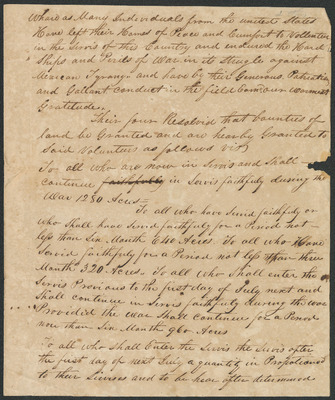 Whereas Many Individuals from the united States
Have left their Homes of Peace and Cumfort to Vollenteer
in the Servis of this Country and endured the Hard
Ships and Perels of War in its Strugle against
Mexican Tyrangy and have by their Generous Patriotism
and Gallant conduct in the field won our warmest
Gratitude,
Their four Resolved that Bounties of
land be Granted and are hearby Granted to
Said Volunteers as follows viz
For all who are now in Servis and Shall
continue faithfully in Servis faithfully during the
War 1280 Acres =
To all who have Servd faithfully or
who Shall have Servd faithfully for a Period not
less than Six Months 640 Acres. To all who Have
Servid faithfully for a Period not less than three
Months 320 Acres - To all who Shall enter the
Servis Previous to the first day of July next and
Shall continue in Servis faithfully during the war
Provided the war Shall continue for a Period
more than Six Months 960 Acres
To all who Shall Enter the Servis after
the first day of next July a quantity in Propotion
to their Servises and to be hear after determined